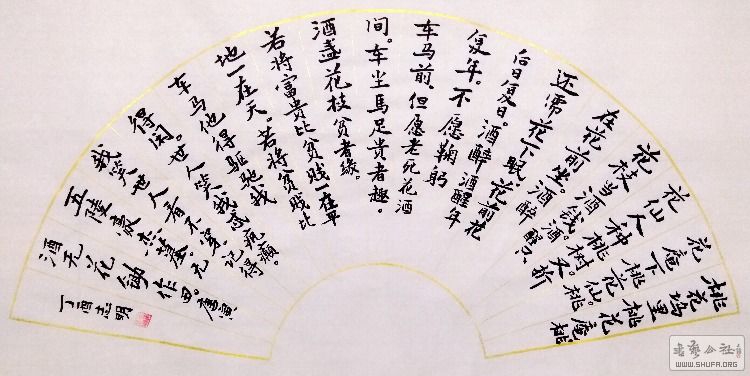 桃花坞里桃花庵桃
花庵下桃花仙。桃
花仙人种桃树。又折
花枝当酒钱。酒醒只
在花前坐。酒醉
还花下眠。花前花
后日复日。酒醉酒醒年
复年。不愿鞠躬
车马前。但愿老死花酒
间。车尘馬足贵者趣。
酒盏花枝贫者缘。
若将富贵比贫贱一在平
地一在天。若将贫贱比
车马他得驱驰我
得闲。世人笑我忒疯癫。
我笑世人看不穿。记得
五陵豪杰墓。无
酒无花锄作田。唐寅
丁酉志明
书艺公社
WWW.SHUFA.ORG